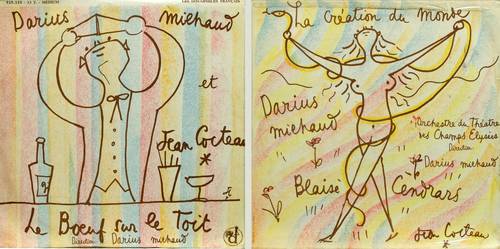 LES DISCOPHILES FRANÇAIS
Darius milhaud
et
Jean Cocteau
*
Le Bœuf sur le Toit
Direction Darius milhaud
La création du monde
Darius
milhaud
Orchestre du Théâtre
des Champs Elysées
Direction
Darius milhaud
Blaise Cendrars
Jean Cocteau
*